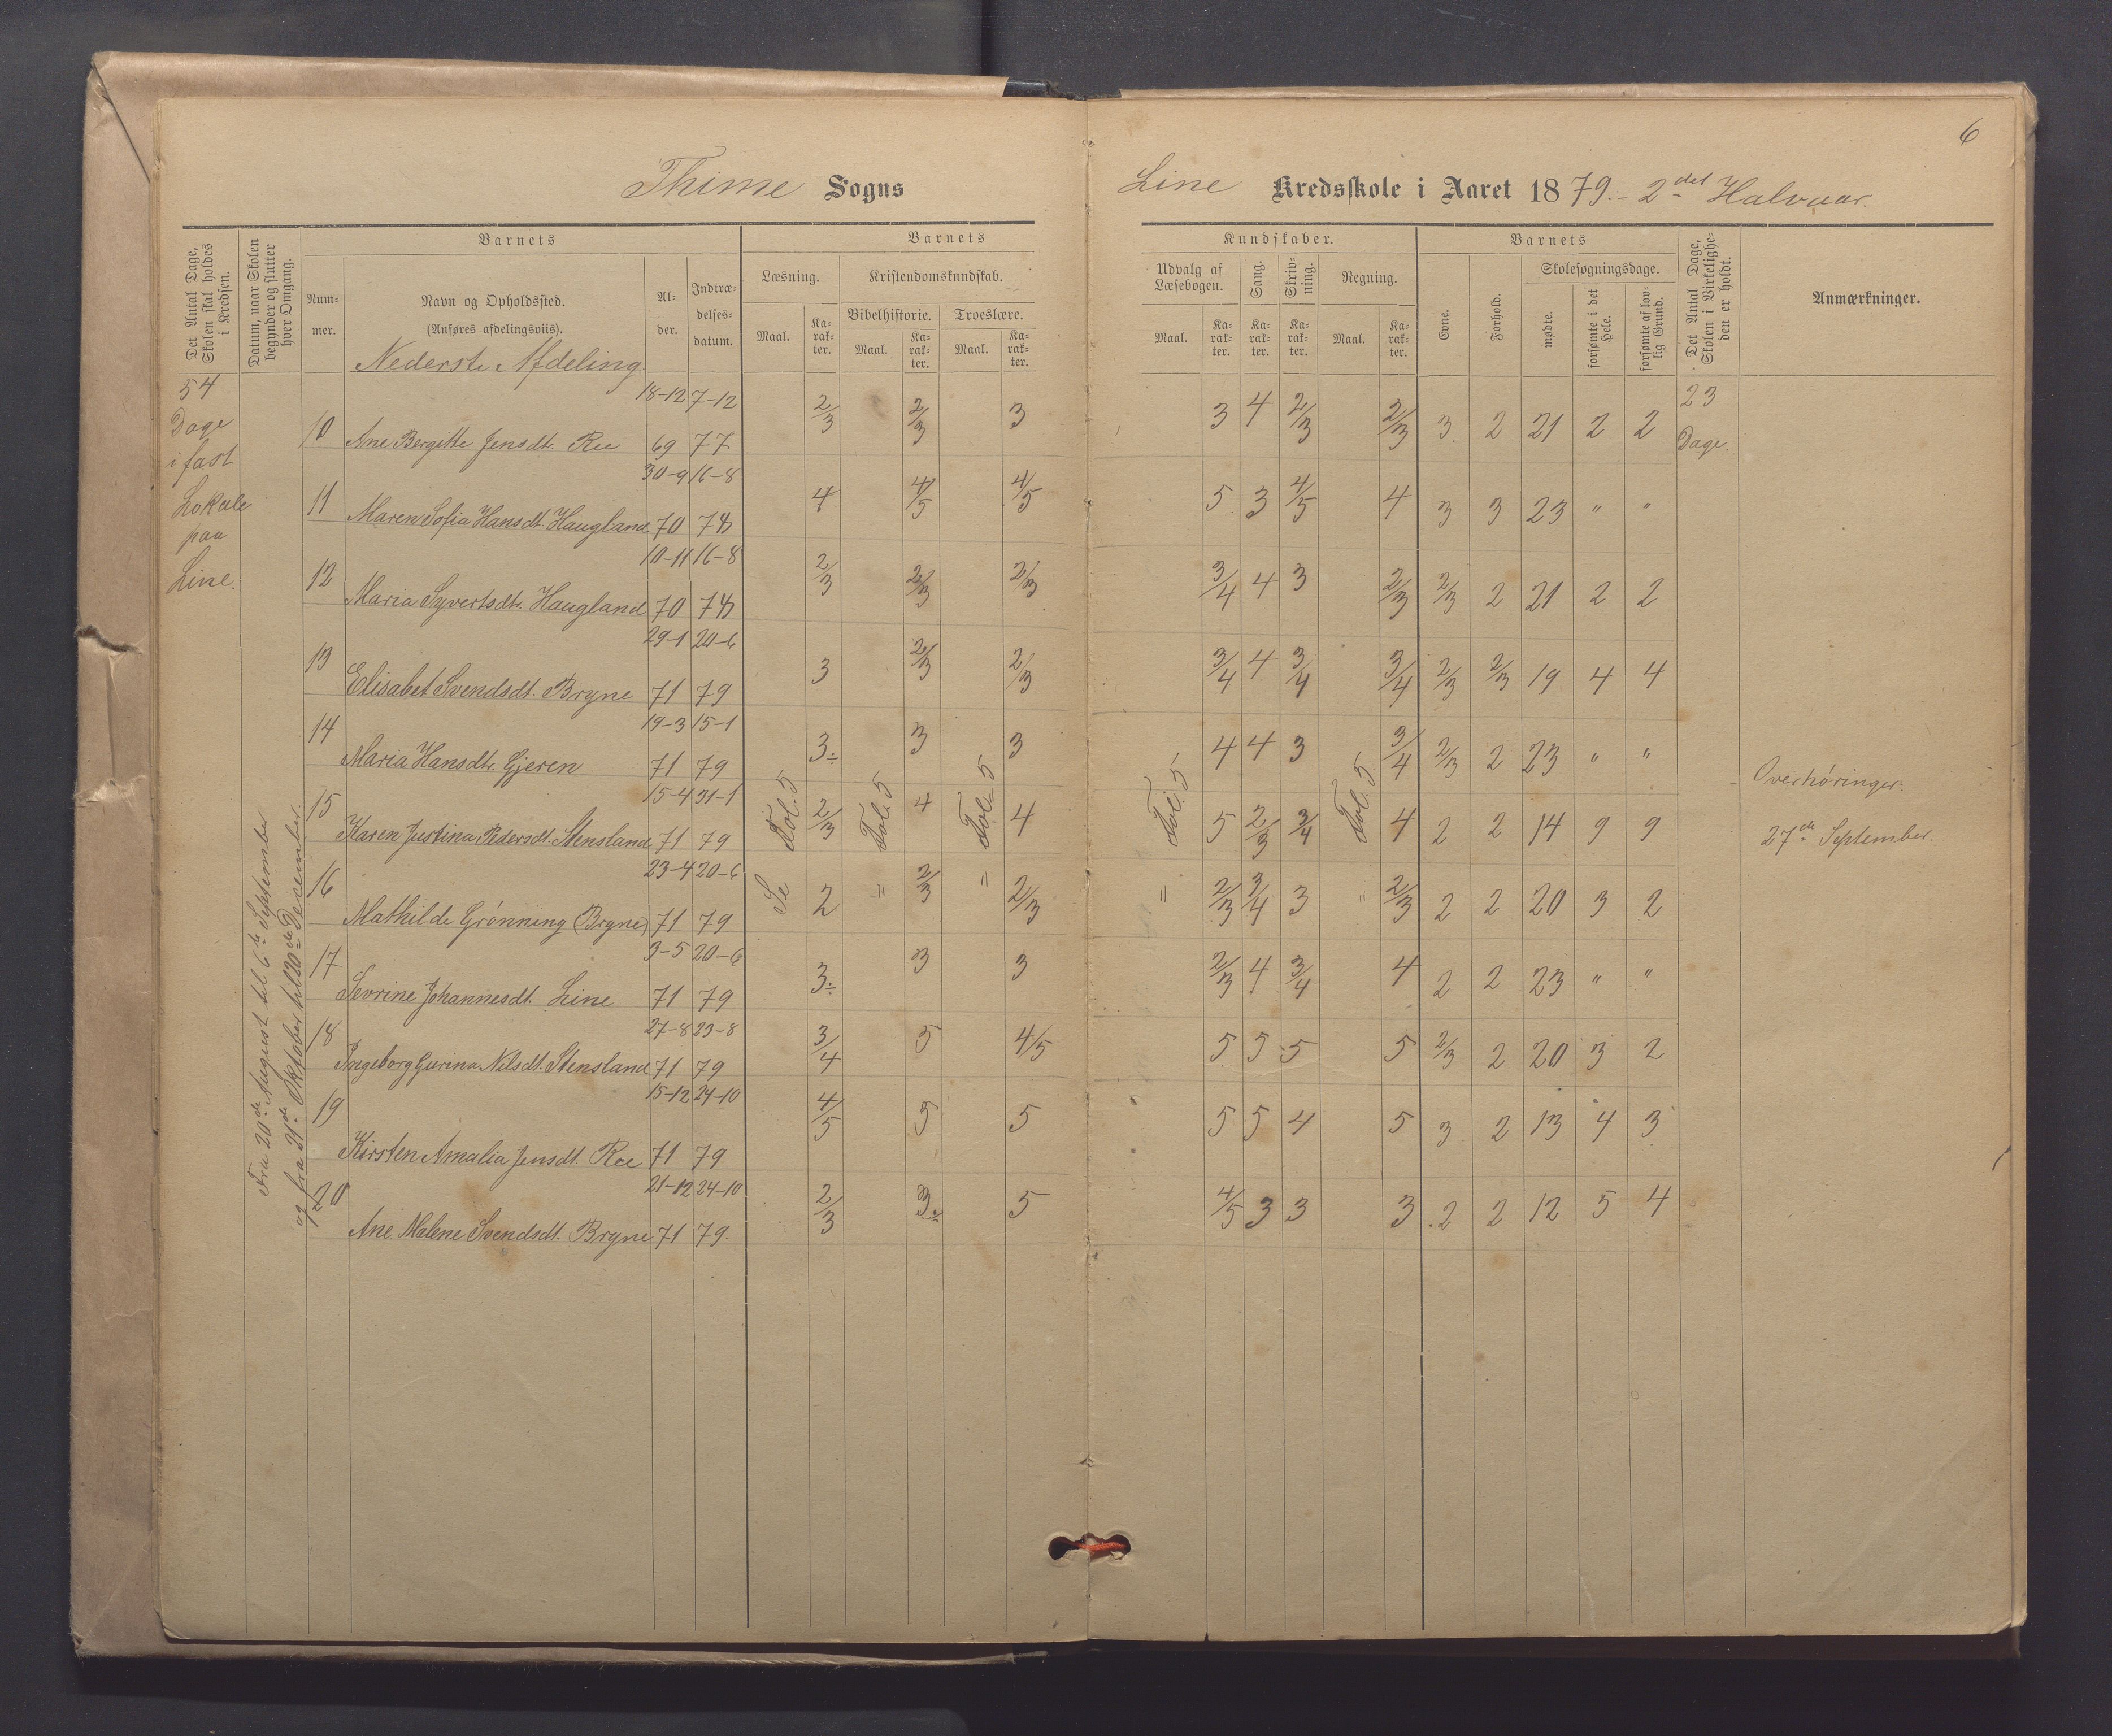 6
Thime Sogns
Line Kredsskole i Aaret 1879. - 2det Halvaar.
Det Antal Dage, Skolen skal holdes i Kredsen.
Datum, naar Skolen begynder og slutter hver Omgang.
Barnets
Nummer.
Navn og Opholdssted.
(Anføres afdelingsviis).
Alder.
Indtrædelsesdatum.
Barnets
Læsning.
Kristendomskundskab.
Bibelhistorie.
Troeslære.
Maal.
Karakter.
Maal.
Karakter.
Maal.
Karakter.
Kundskaber.
Udvalg af Læsebogen.
Sang.
Skrivning.
Regning.
Maal.
Karakter.
Karakter.
Karakter.
Maal.
Karakter.
Barnets
Evne.
Forhold.
Skolesøgningsdage.
mødte.
forsømte i det Hele.
forsømte af lovlig Grund.
Det Antal Dage, Skolen i Virkeligheden er holdt.
Anmærkninger.
Nederste Afdeling
54
Dage
i fast
Lokale
paa
Line.
Fra 20de August til 6te September
og fra 21de Oktober til 20de December.
18-12 7-12
10 Ane Bergitte Jensdt. Ree 69 77 2/3 2/3 3 3 4 2/3 2/3 3. 2 21 2 2 23 Dage.
30-9 16-8
11 Maren Sofia Hansdt. Haugland 70 78 4 4/5 4/5 5 3 4/5 4 3 3 23 " "
10-11 16-8
12 Maria Syvertsdtr. Haugland 70 78 2/3 2/3 2/3 3/4 4 3 2/3 2/3 2 21 2 2
29-1 20-6
13 Elisabet Svendsdt. Bryne 71 79 3 2/3 2/3 3/4 4 3/4 3/4 2/3 2/3 19 4 4
19-3 15-1
14 Maria Hansdtr. Gjeren 71 79 3÷ 3 3 4 4 3 3/4 2/3 2 23 " "
Overhøringer.
15-4 31-1
15 Karen Justina Pedersdt. Stensland 71 79 Fol. 5 2/3 Fol. 5 4 Fol. 5 4 Fol. 5 5 2/3 3/4 Fol. 5 4 2 2 14 9 9
27de September.
23-4 20-6
16 Mathilde Grønning (Bryne) 71 79 Se 2 " 2/3 " 2/3 " 2/3 3/4 3 " 2/3 2 2 20 3 2
3-5 20-6
17 Sevrine Johannesdt. Line 71 79 3÷ 3 3 2/3 4 3/4 4 2 2 23 " "
27-8 23-8
18 Ingeborg Gurina Nilsdt. Stensland 71 79 3/4 5 4/5 5 5 5 5 2/3 2 20 3 2
15-12 24-10
19 Kirsten Amalia Jensdt. Ree 71 79 4/5 5 5 5 5 4 5 3 2 13 4 3
21-12 24-10
20 Ane Malene Svendsdt. Bryne 71 79. 2/3 3÷ 5 4/5 3 3 3 2 2 12 5 4